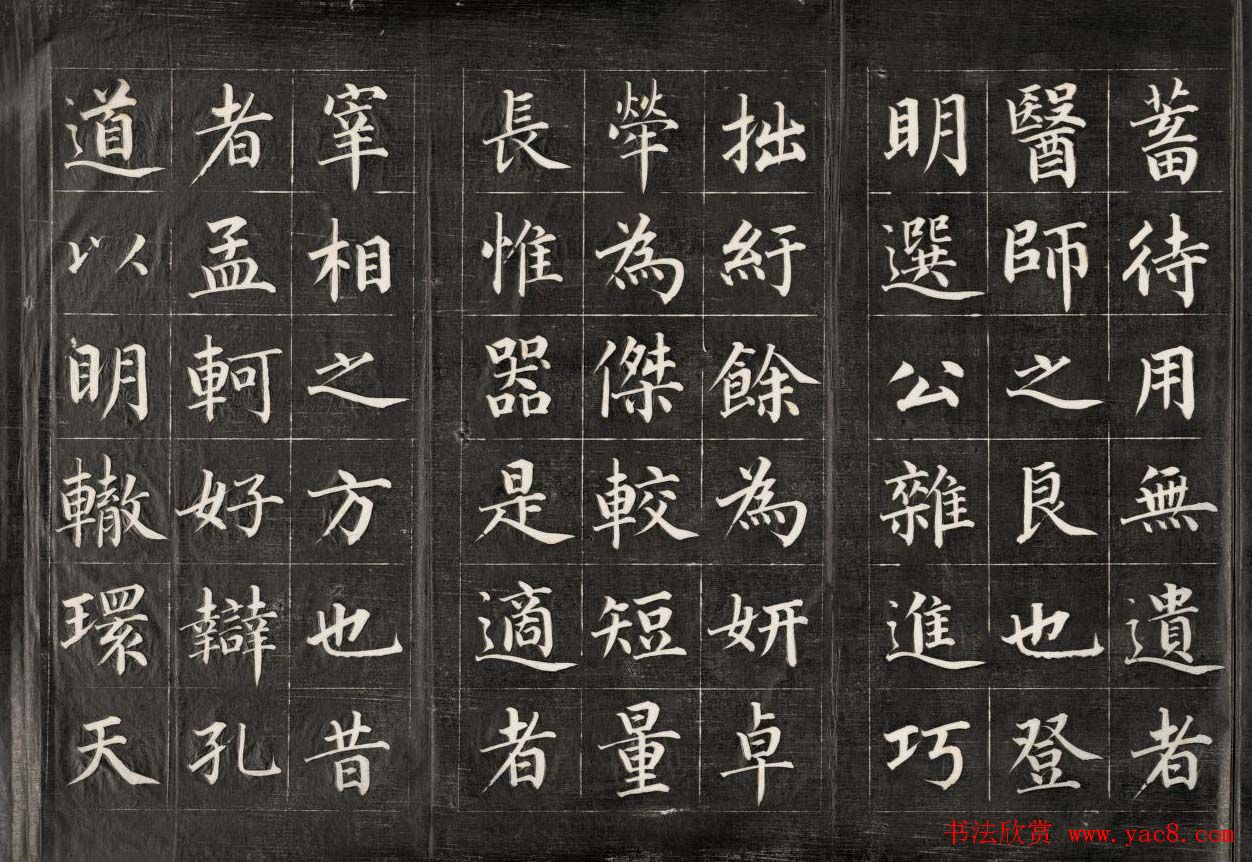 蓄待用無遺者
醫師之良也登
明選公雜進巧
拙紆餘為妍卓
犖為傑較短量
長惟器是適者
宰相之方也昔
者孟軻好辯孔
道以明轍環天
书法欣赏 www.yac8.com